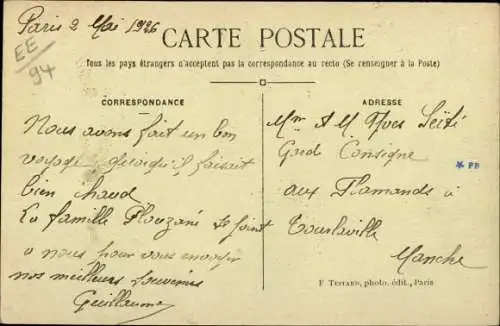 Paris 2 Mai 1926
EE/94
CARTE POSTALE
Tous les pays étrangers n'acceptent pas la correspondance au recto (Se renseigner à la Poste)
CORRESPONDANCE
Nous avons fait un bon
voyage quoiqu'il faisait
bien chaud
La famille Plouzané se joint
a nous pour vous envoyer
nos meilleurs souvenirs
Guillaume
ADRESSE
Mme & M Yves
Gard Consigne
aux Flamands à
Tourlaville
Manche
* PB
F TESTARD, photo. édit., Paris